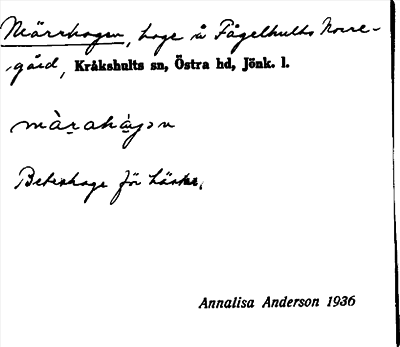 Märrhagen, hage å Fågelhults Norre-
gård, Kråkshults sn, Östra hd, Jönk. l.
màrahàgən
Beteshage för hästar.
Annalisa Anderson 1936